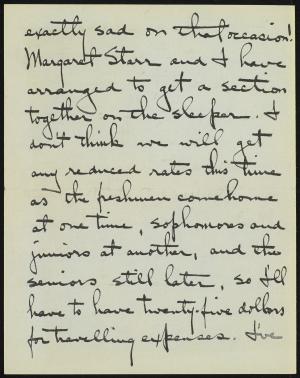 exactly sad on that occasion!
Margaret Starr and I have
arranged to get a section
together on the sleeper. I
don't think we will get
any reduced rates this time
as the freshmen come home
at one time, sophomores and
juniors at another, and the
seniors still later, so I'll
have to have twenty-five dollars
for travelling expenses. I've